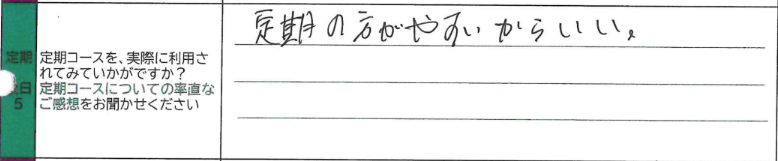 定期の方がやすいからいい。
定期
定期コースを、実際に利用さ
れてみていかがですか？
日
定期コースについての率直な
5
ご感想をお聞かせください